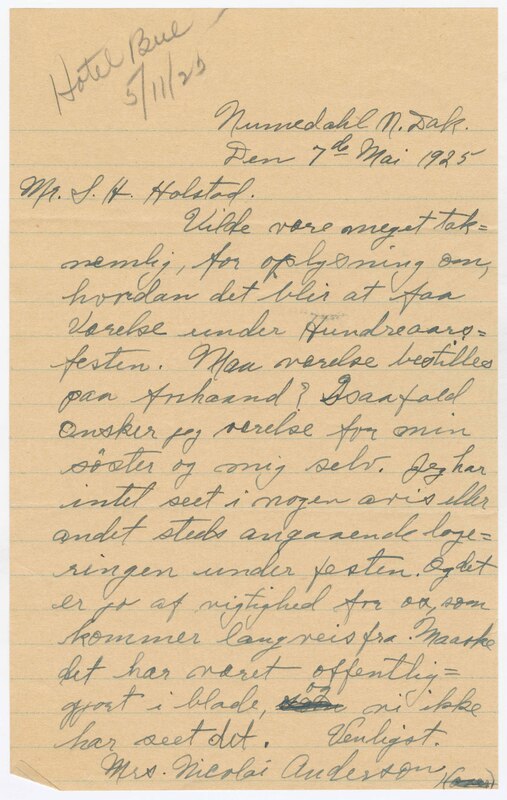 Hotel Bur
5/11/25
Numedahl N. Dak.
Den 7de Mai 1925
Mr. S. H. Holstad.
Vilde være meget tak=
nemlig, for oplysning om,
hvordan det blir at faa
Værelse under Hundreaars=
festen. Maa værelse bestilles
paa forhaand? Isaafald
ønsker jeg værelse for min
søster og mig selv. Jeg har
intet seet i nogen avis eller
andet steds angaaende loge=
ringen under festen. Og det
er jo af vigtighed for os, som
kommer langveisfra. Maaske
det har været offentlig=
gjort i blade, og vi ikke
har seet det. Venligst.
Mrs. Nicolai Anderson